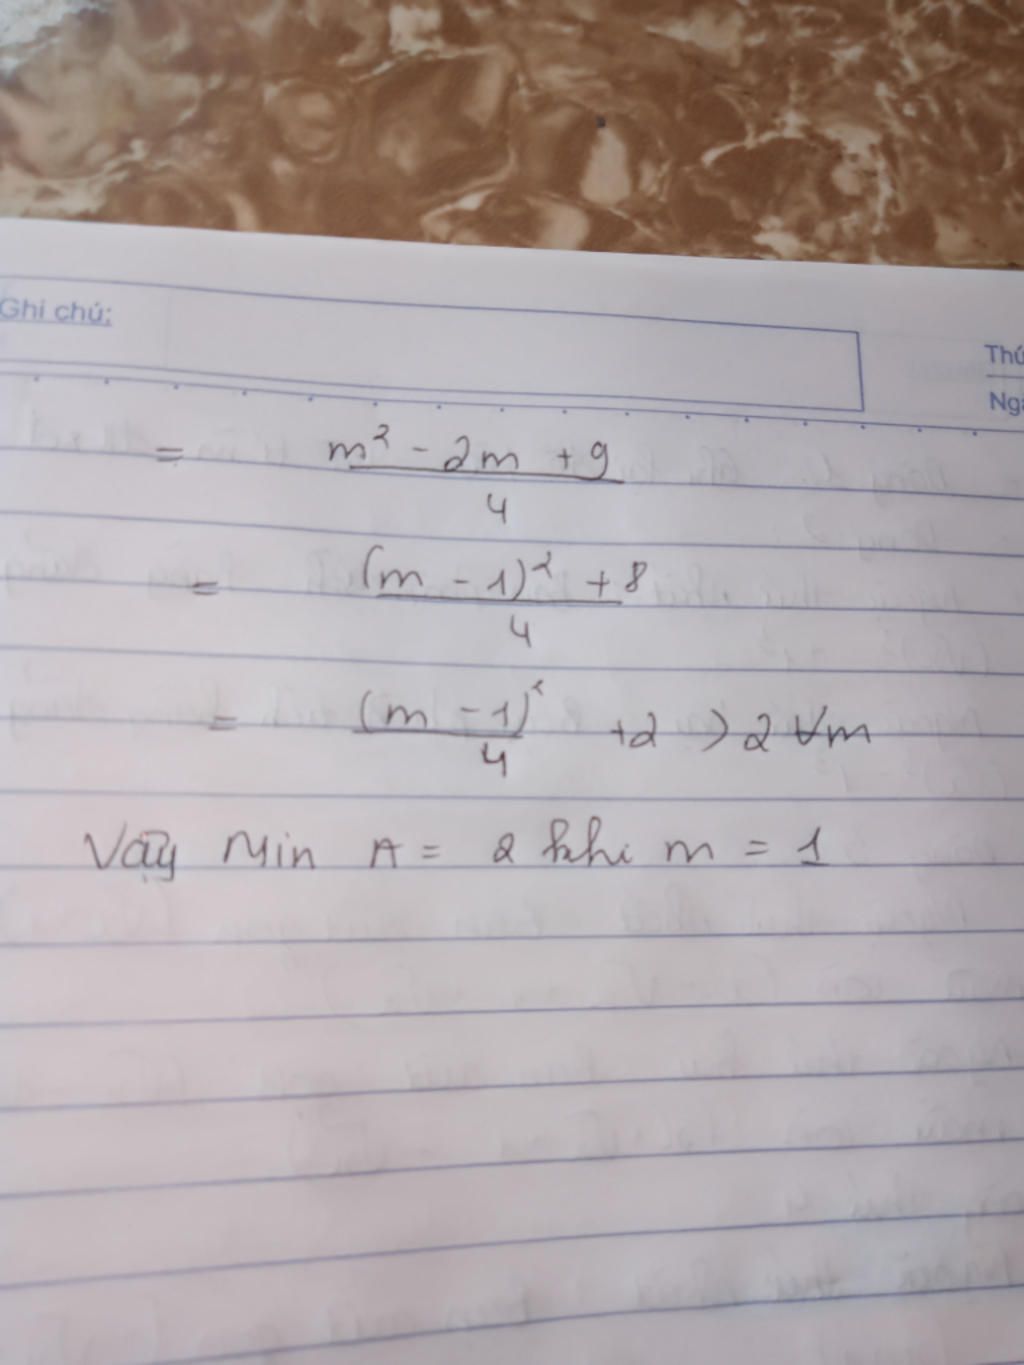 Ghi chú:
Thứ
Ngà
= m² - 2m + 9
4
= (m - 1)² + 8
4
= (m - 1)² + 2 > 2 ∀m
4
Vậy Min A = 2 khi m = 1